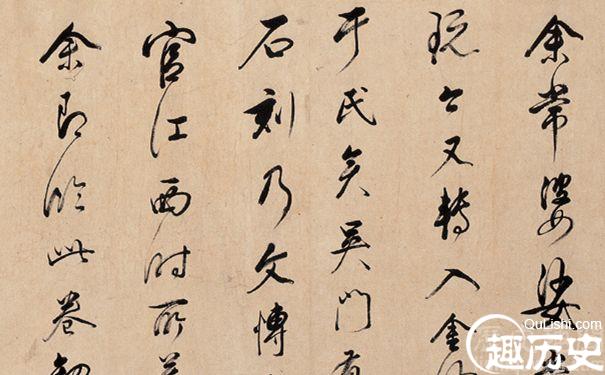 余常婆娑
玩今又轉入金
于氏矣吳門有
石刻乃文博
官江西時所
余即臨此卷
QuLishi.com
趣历史